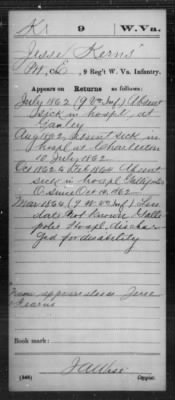 K 9 W.Va.
Jesse Kerns
Pvt, Co. E, 9 Reg't W. Va. Infantry.
Appears on Returns as follows:
July 1862 (9 Va Inf) Absent
sick in hospl, at
Gauley
Aug 1862, Absent sick in
hospl at Charleston
July 1862.
Oct 1862 to Feb 1864 Absent
sick in hospl, Gallipolis
O. since Oct 14, 1862.
Mar 1864 (9 W Va Inf)
date not known Galli
polis Hospl, dischar
ged for disability
Name appears also as Jesse
Kearns
Book mark:
(546)
J A Wise
Copyist.